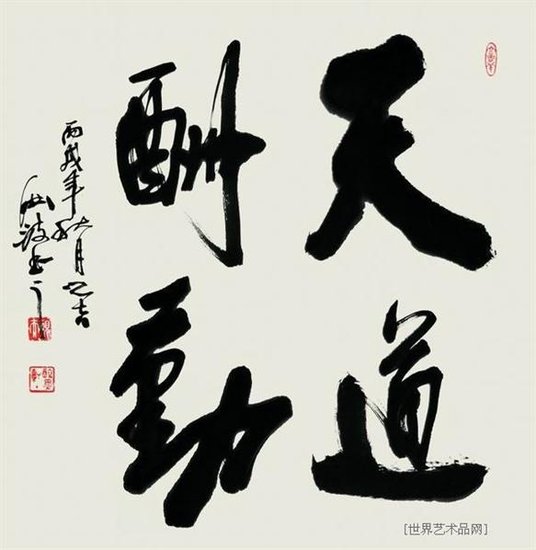 天道
酬勤
丙戌年秋月之吉
[世界艺术品网]